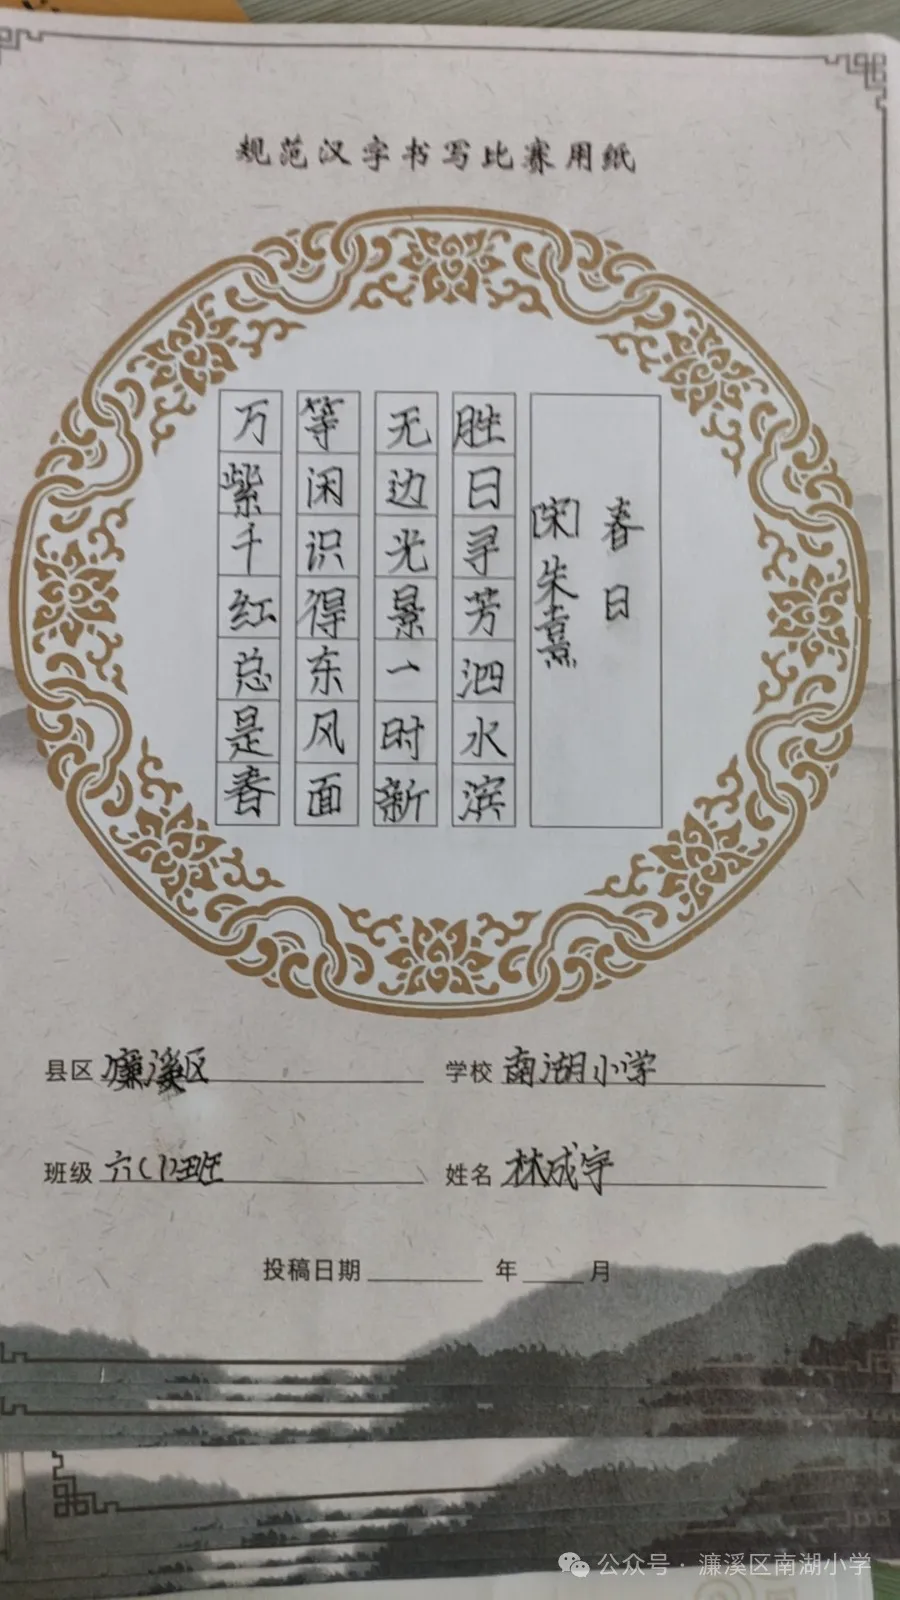 规范汉字书写比赛用纸
春日
[宋]朱熹
胜日寻芳泗水滨
无边光景一时新
等闲识得东风面
万紫千红总是春
县区 濂溪区 学校 南湖小学
班级 六(1)班 姓名 林成宇
投稿日期 年 月
公众号·濂溪区南湖小学